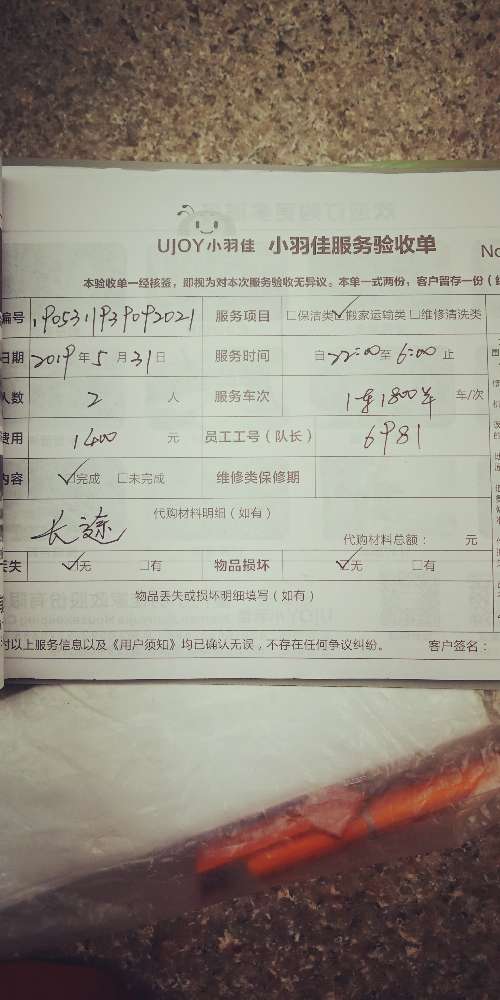 UJOY小羽佳 小羽佳服务验收单
No
本验收单一经核签，即视为对本次服务验收无异议。本单一式两份，客户留存一份（
编号 1905311939092021 服务项目 □保洁类 ☑搬家运输类 □维修清洗类
日期 2019年5月31日 服务时间 自22:00至6:00止
人数 2 人 服务车次 1车1800年 车/次
费用 1400 元 员工工号（队长） 6981
内容 ☑完成 □未完成 维修类保修期
代购材料明细（如有）
长途
代购材料总额： 元
丢失 ☑无 □有 物品损坏 ☑无 □有
物品丢失或损坏明细填写（如有）
对以上服务信息以及《用户须知》均已确认无误，不存在任何争议纠纷。 客户签名：